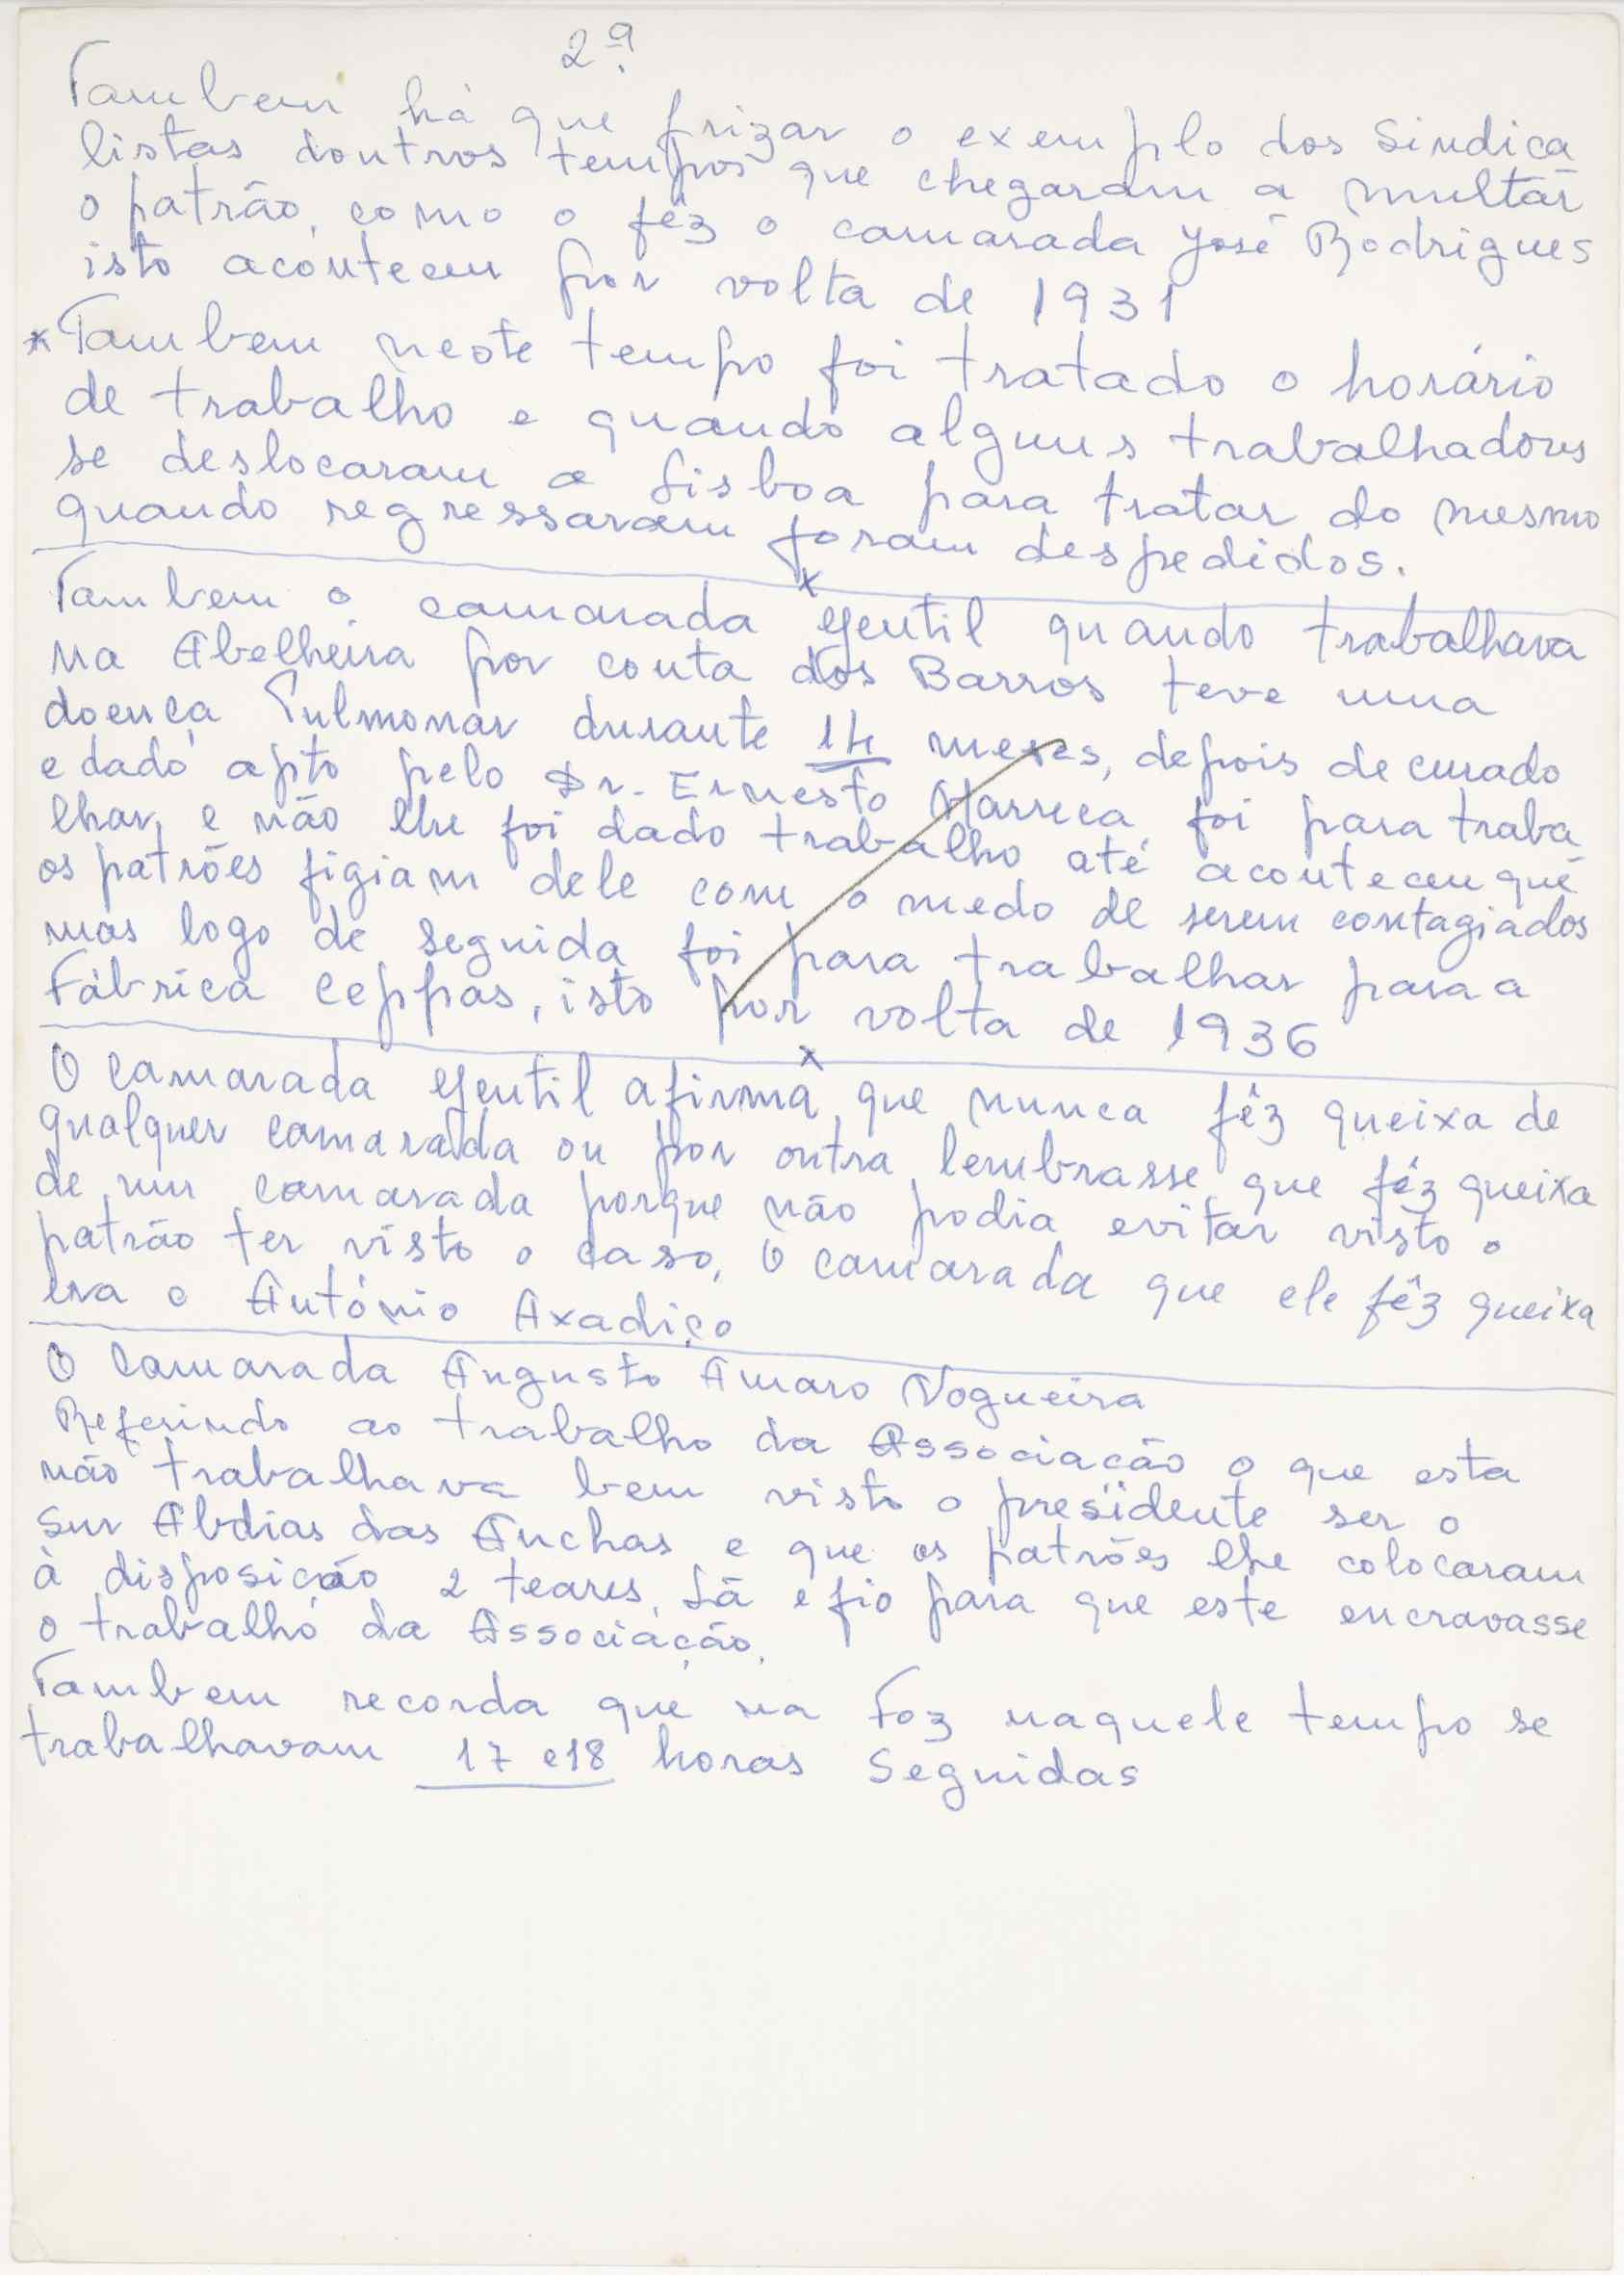 2ª
Tambem há que frizar o exemplo dos Sindica
listas doutros tempos que chegaram a multar
o patrão, como o fêz o camarada José Rodrigues
isto aconteceu por volta de 1931
* Tambem neste tempo foi tratado o horário
de trabalho e quando alguns trabalhadores
se deslocaram a Lisboa para tratar do mesmo
quando regressaram foram despedidos.
x
Tambem o camarada Gentil quando trabalhava
na Abelheira por conta dos Barros teve uma
doença Pulmonar durante 14 meses, depois de curado
e dado apto pelo Dr. Ernesto Marreca foi para traba
lhar, e não lhe foi dado trabalho até aconteceu que
os patrões figiam dele com o medo de serem contagiados
mas logo de seguida foi para trabalhar para a
Fábrica Ceppas, isto por volta de 1936
x
O Camarada Gentil afirma, que nunca fêz queixa de
qualquer camarada ou por outra, lembrasse que fêz queixa
de um camarada porque não podia evitar visto o
patrão ter visto o caso, O camarada que ele fêz queixa
era o António Axadiço
O Camarada Augusto Amaro Nogueira
Referindo ao trabalho da Associação o que esta
não trabalhava bem visto o presidente ser o
Snr Abdias das Anchas e que os patrões lhe colocaram
à disposição 2 teares, Lã e fio para que este encravasse
o trabalho da Associação.
Tambem recorda que na Foz naquele tempo se
trabalhavam 17 e 18 horas Seguidas